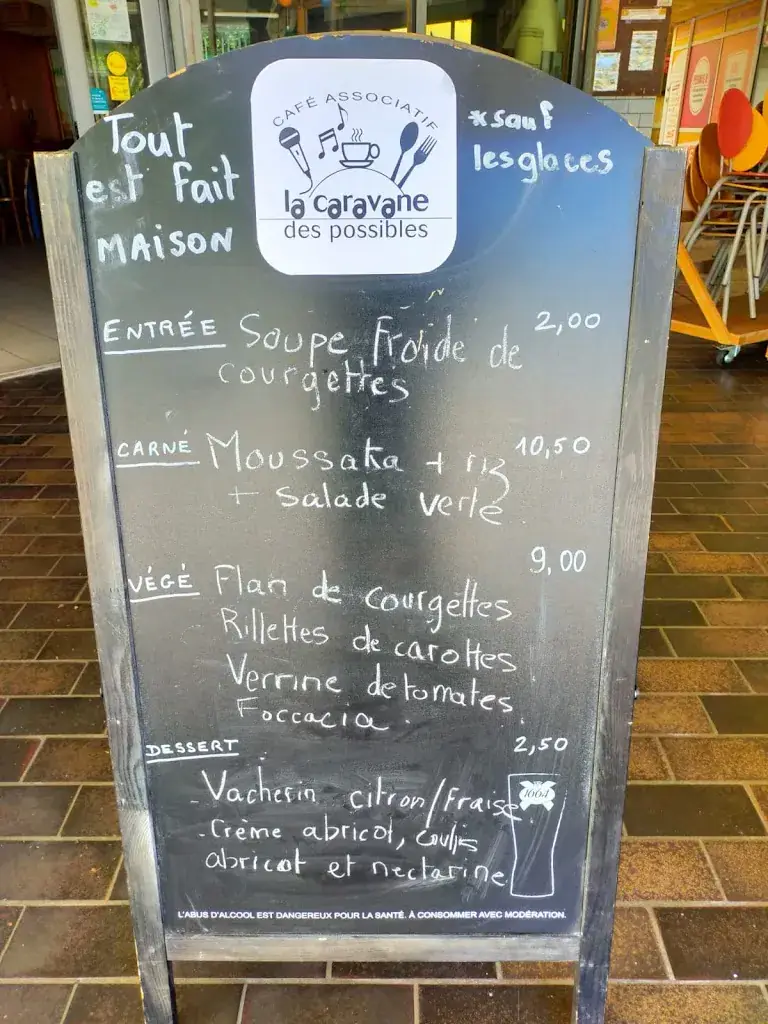 Tout
est fait
MAISON
CAFÉ ASSOCIATIF
la caravane
des possibles
*sauf
les glaces
ENTRÉE Soupe froide de 2,00
courgettes
CARNÉ Moussaka + riz 10,50
+ salade verte
9,00
VÉGÉ Flan de courgettes
Rillettes de carottes
Verrine de tomates
Foccacia
DESSERT 2,50
- Vacherin citron/fraise
- Crème abricot, coulis
abricot et nectarine
1664
L'ABUS D'ALCOOL EST DANGEREUX POUR LA SANTÉ. À CONSOMMER AVEC MODÉRATION.